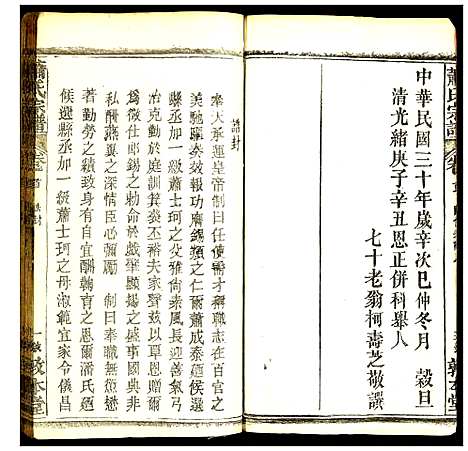 中華民國三十年歲辛次巳仲冬月 穀旦
清光緒庚子辛丑恩正併科舉人
七十老翁柯壽芝敬譔
誥封
奉天承運皇帝制曰任使需才稱職志在百官之
美馳驅奏效報功膺錫類之仁爾蕭成泰廼侯選
縣丞加一級蕭士珂之父雅尚素風長迎善氣弓
冶克勤於庭訓箕裘丕裕夫家聲茲以覃恩贈
爾為徵仕郎錫之勅命於戲肇顯揚之盛事國典非
私酬燕翼之深情臣心彌勵 制曰奉職無愆懋
著勤勞之績致身有自宜酬鞠育之恩爾潘氏廼
候選縣丞加一級蕭士珂之母淑範宜家令儀昌
蕭氏宗譜
卷
首
誥封
敦本堂
蕭氏宗譜
卷
敦本堂